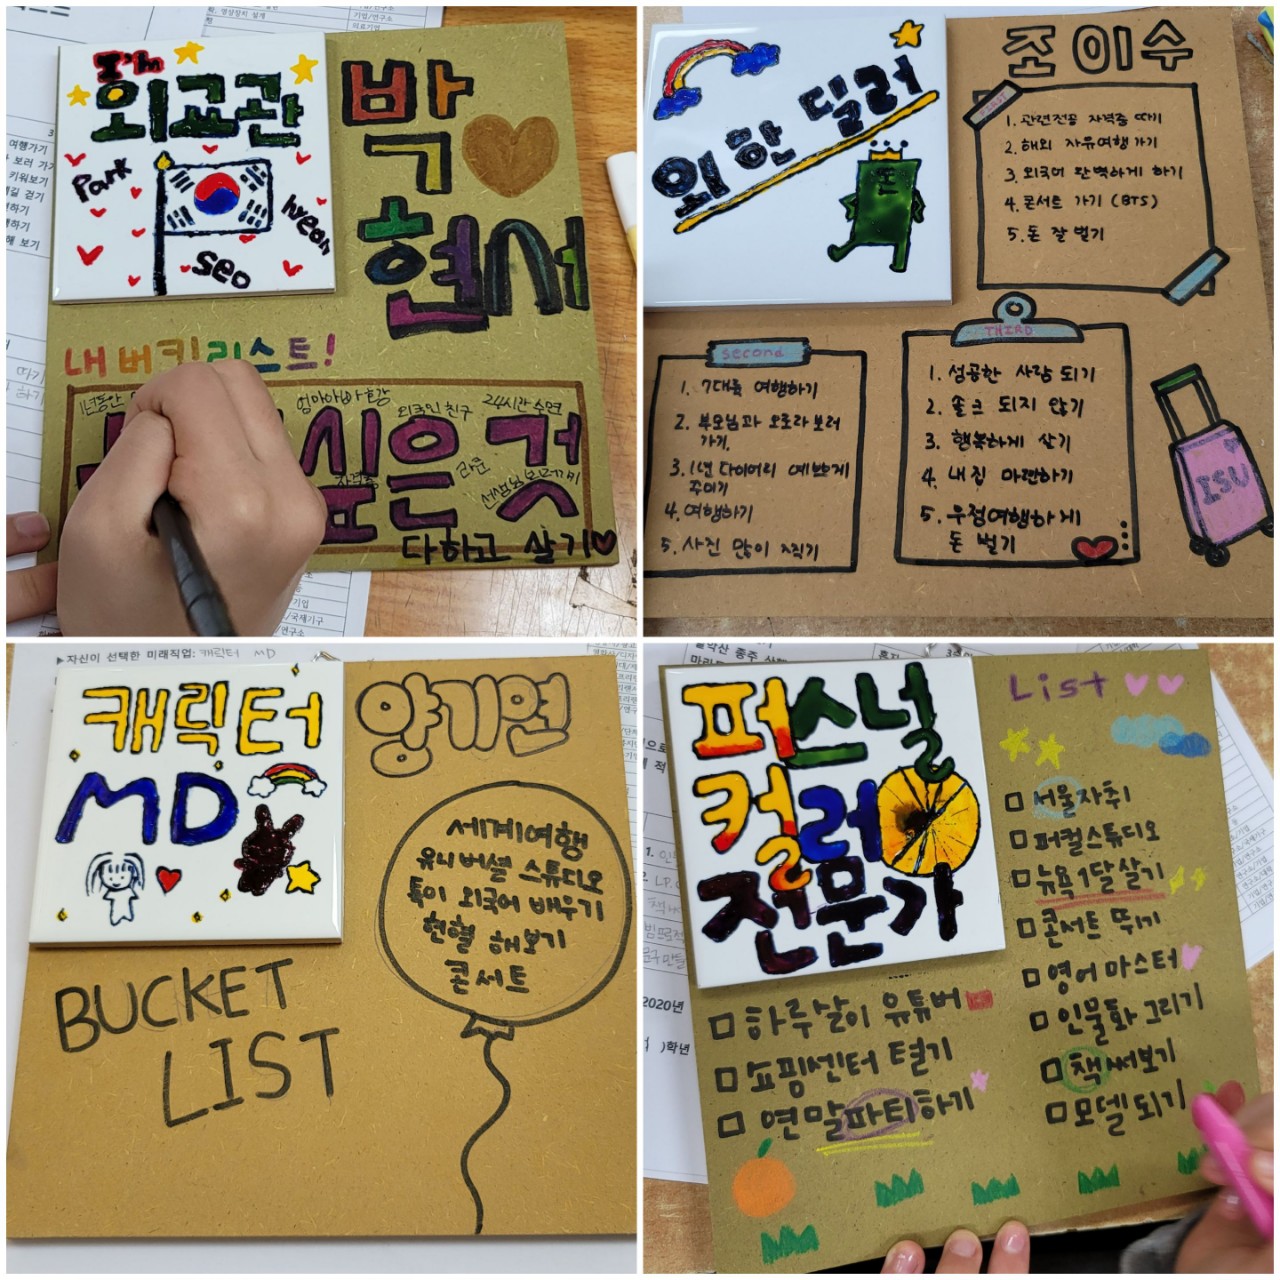 I'm
외교관
Park
hyeon
seo
박
현서
내 버킷리스트!
1년동안
엄마아빠 효강
외국인 친구
24시간 수면
싶은 것
자격증
라운
다하고 살기
외환 딜러
조이수
FIRST
1. 관련전공 자격증 따기
2. 해외 자유여행 가기
3. 외국어 완벽하게 하기
4. 콘서트 가기 (BTS)
5. 돈 잘 벌기
second
1. 7대륙 여행하기
2. 부모님과 오로라 보러
가기.
3. 1년 다이어리 예쁘게
꾸미기
4. 여행하기
5. 사진 많이 찍기
THIRD
1. 성공한 사람 되기
2. 솔크 되지 않기
3. 행복하게 살기
4. 내 집 마련하기
5. 우정여행하게
돈 벌기
ISU
▶자신이 선택한 미래직업: 캐릭터 MD
캐릭터
MD
양기연
세계여행
유니버셜 스튜디오
특이 외국어 배우기
헌혈 해보기
콘서트
BUCKET
LIST
퍼스널
컬러
전문가
List
서울자취
퍼컬스튜디오
뉴욕 1달살기
콘서트 뛰기
영어 마스터
인물화 그리기
책 써보기
모델 되기
하루살이 유튜버
쇼핑센터 털기
연말파티하기
2020년
)학년